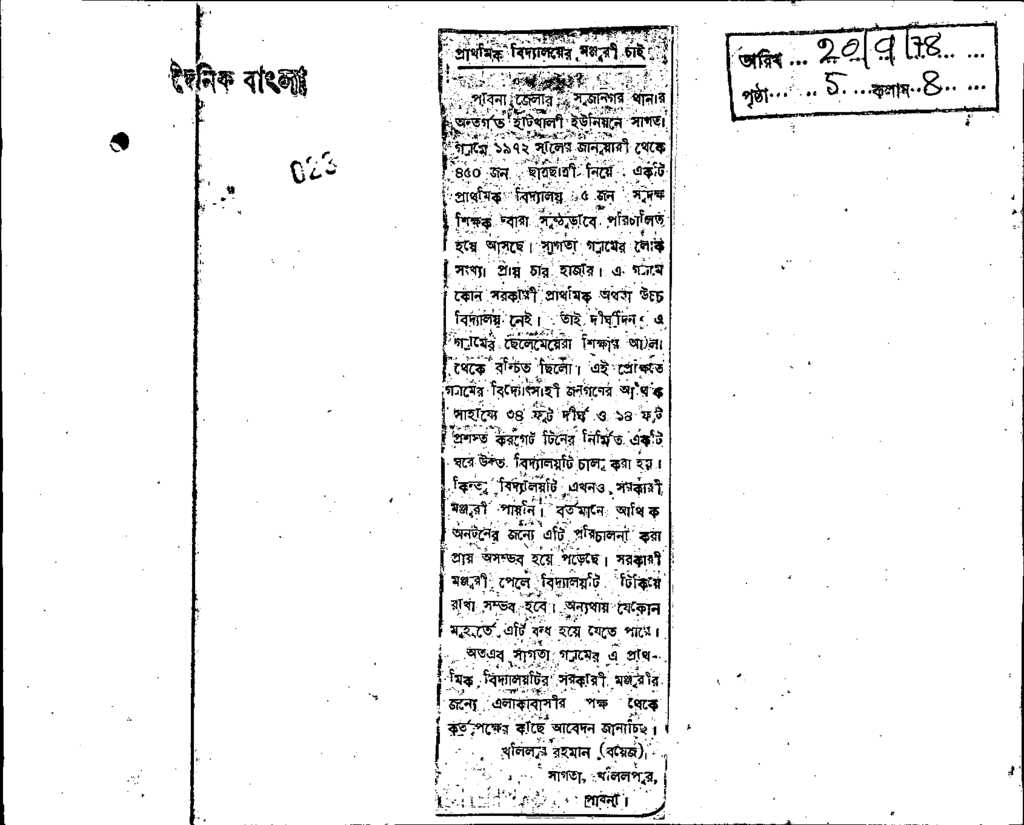 দৈনিক বাংলা
023
তারিখ ... 20/9/78 ... ...
পৃষ্ঠা... ... 5 ... কলাম..8.. ...
প্রাথমিক বিদ্যালয়ের মঞ্জুরী চাই
পাবনা জেলার সুজানগর থানার
অন্তর্গত হাটখালী ইউনিয়নে সাগতা
গ্রামে ১৯৭২ সালের জানুয়ারী থেকে
৪৫০ জন ছাত্রছাত্রী নিয়ে একটি
প্রাথমিক বিদ্যালয় ৫ জন সুদক্ষ
শিক্ষক দ্বারা সুষ্ঠুভাবে পরিচালিত
হয়ে আসছে। সাগতা গ্রামের লোক
সংখ্যা প্রায় চার হাজার। এ গ্রামে
কোন সরকারী প্রাথমিক অথবা উচ্চ
বিদ্যালয় নেই। তাই দীর্ঘদিন এ
গ্রামের ছেলেমেয়েরা শিক্ষার আলো
থেকে বঞ্চিত ছিলো। এই প্রেক্ষিতে
গ্রামের বিদ্যোৎসাহী জনগণের আর্থিক
সাহায্যে ৩৪ ফুট দীর্ঘ ও ১৪ ফুট
প্রশস্ত করগেট টিনের নির্মিত একটি
ঘরে উক্ত বিদ্যালয়টি চালু করা হয়।
কিন্তু বিদ্যালয়টি এখনও সরকারী
মঞ্জুরী পায়নি। বর্তমানে আর্থিক
অনটনের জন্যে এটি পরিচালনা করা
প্রায় অসম্ভব হয়ে পড়েছে। সরকারী
মঞ্জুরী পেলে বিদ্যালয়টি টিকিয়ে
রাখা সম্ভব হবে। অন্যথায় যেকোন
মুহূর্তে এটি বন্ধ হয়ে যেতে পারে।
অতএব সাগতা গ্রামের এ প্রাথ-
মিক বিদ্যালয়টির সরকারী মঞ্জুরীর
জন্যে এলাকাবাসীর পক্ষ থেকে
কর্তৃপক্ষের কাছে আবেদন জানাচ্ছি।
খলিলুর রহমান (বয়েজ)
সাগতা, খলিলপুর,
পাবনা।